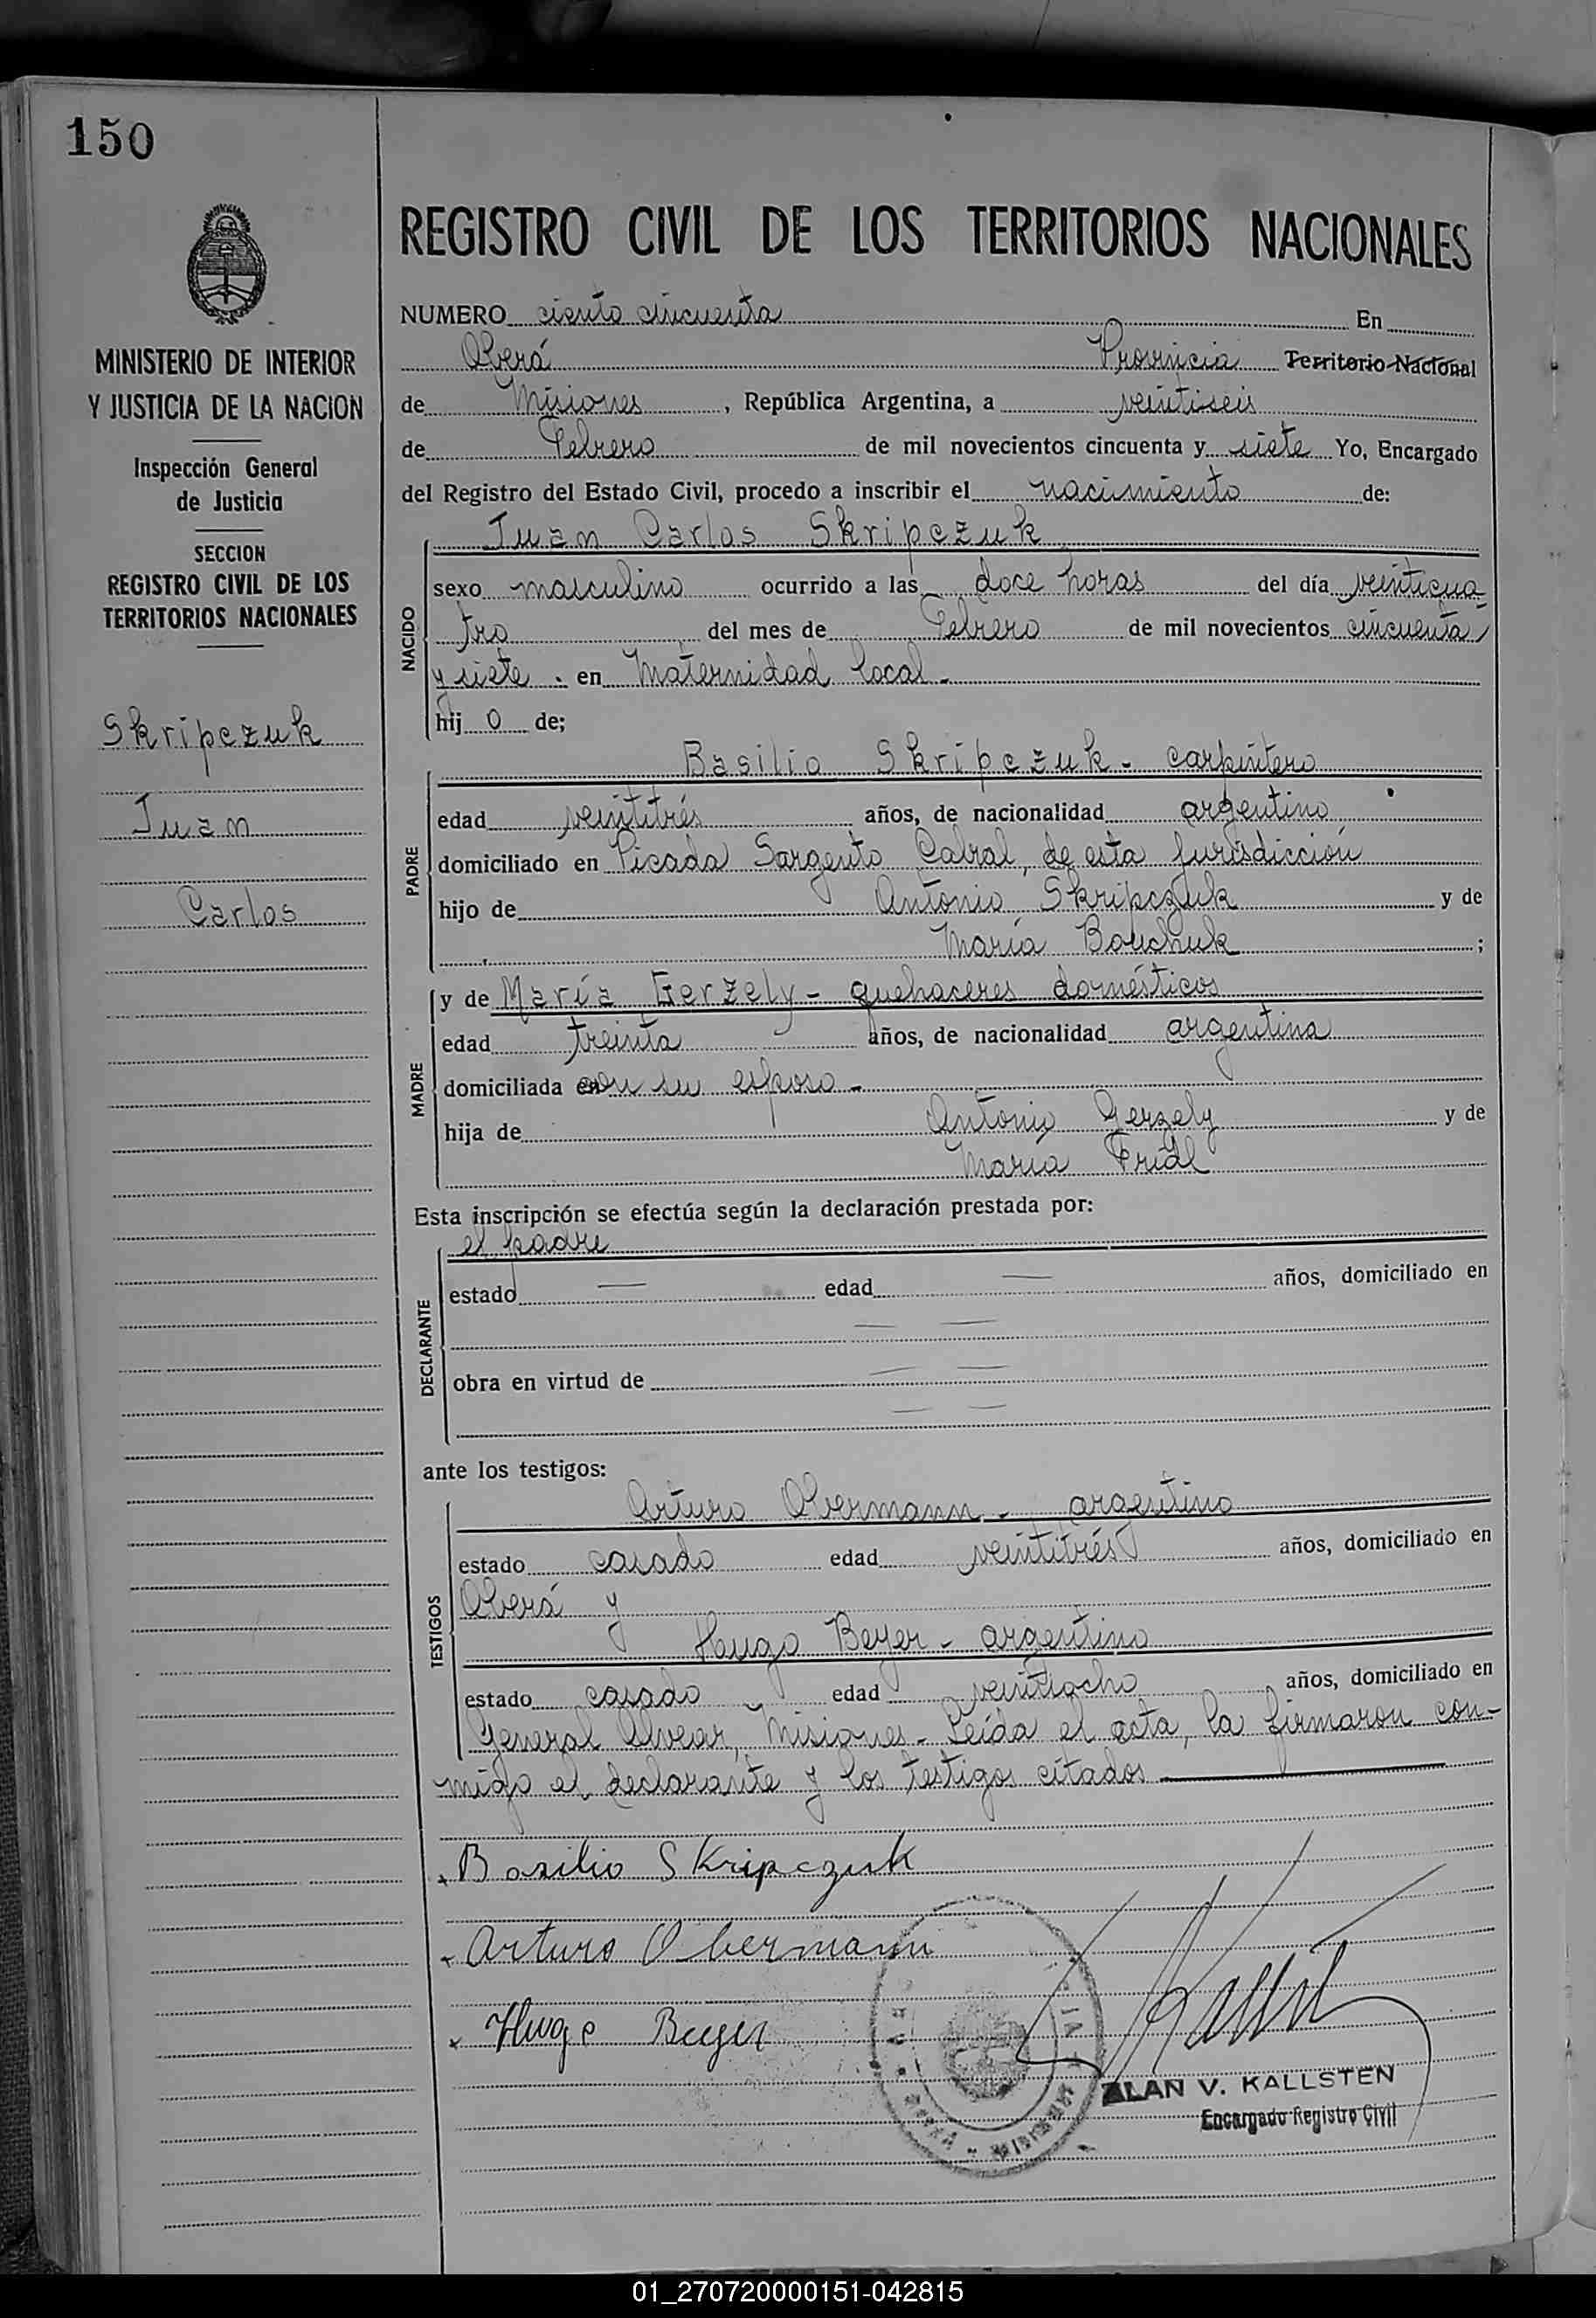 150
REGISTRO CIVIL DE LOS TERRITORIOS NACIONALES
MINISTERIO DE INTERIOR
Y JUSTICIA DE LA NACION
Inspección General
de Justicia
SECCION
REGISTRO CIVIL DE LOS
TERRITORIOS NACIONALES
Skripczuk
Juan
Carlos
NUMERO ciento cincuenta En
Oberá Provincia Territorio Nacional
de Misiones, República Argentina, a veintiseis
de Febrero de mil novecientos cincuenta y siete Yo, Encargado
del Registro del Estado Civil, procedo a inscribir el nacimiento de:
NACIDO
Juan Carlos Skripczuk
sexo masculino ocurrido a las doce horas del día veinticua-
tro del mes de Febrero de mil novecientos cincuenta
y siete . en Maternidad local.-
hij o de;
PADRE
Basilio Skripczuk - carpintero
edad veintitrés años, de nacionalidad argentino
domiciliado en Picada Sargento Cabral, de esta jurisdicción
hijo de Antonio Skripczuk y de
María Bouchuk ;
MADRE
y de María Gerzely - quehaceres domésticos
edad treinta años, de nacionalidad argentina
domiciliada en con su esposo -
hija de Antonio Gerzely y de
María Fridl
Esta inscripción se efectúa según la declaración prestada por:
DECLARANTE
el padre
estado — edad — años, domiciliado en
— —
obra en virtud de — —
— —
ante los testigos:
TESTIGOS
Arturo Obermann - argentino
estado casado edad veintitrés años, domiciliado en
Oberá y
Hugo Beyer - argentino
estado casado edad veintiocho años, domiciliado en
General Alvear, Misiones - Leída el acta, la firmaron con-
migo el declarante y los testigos citados
Basilio Skripczuk
Arturo Obermann
Hugo Beyer
ALAN V. KALLSTEN
Encargado Registro Civil
01_270720000151-042815